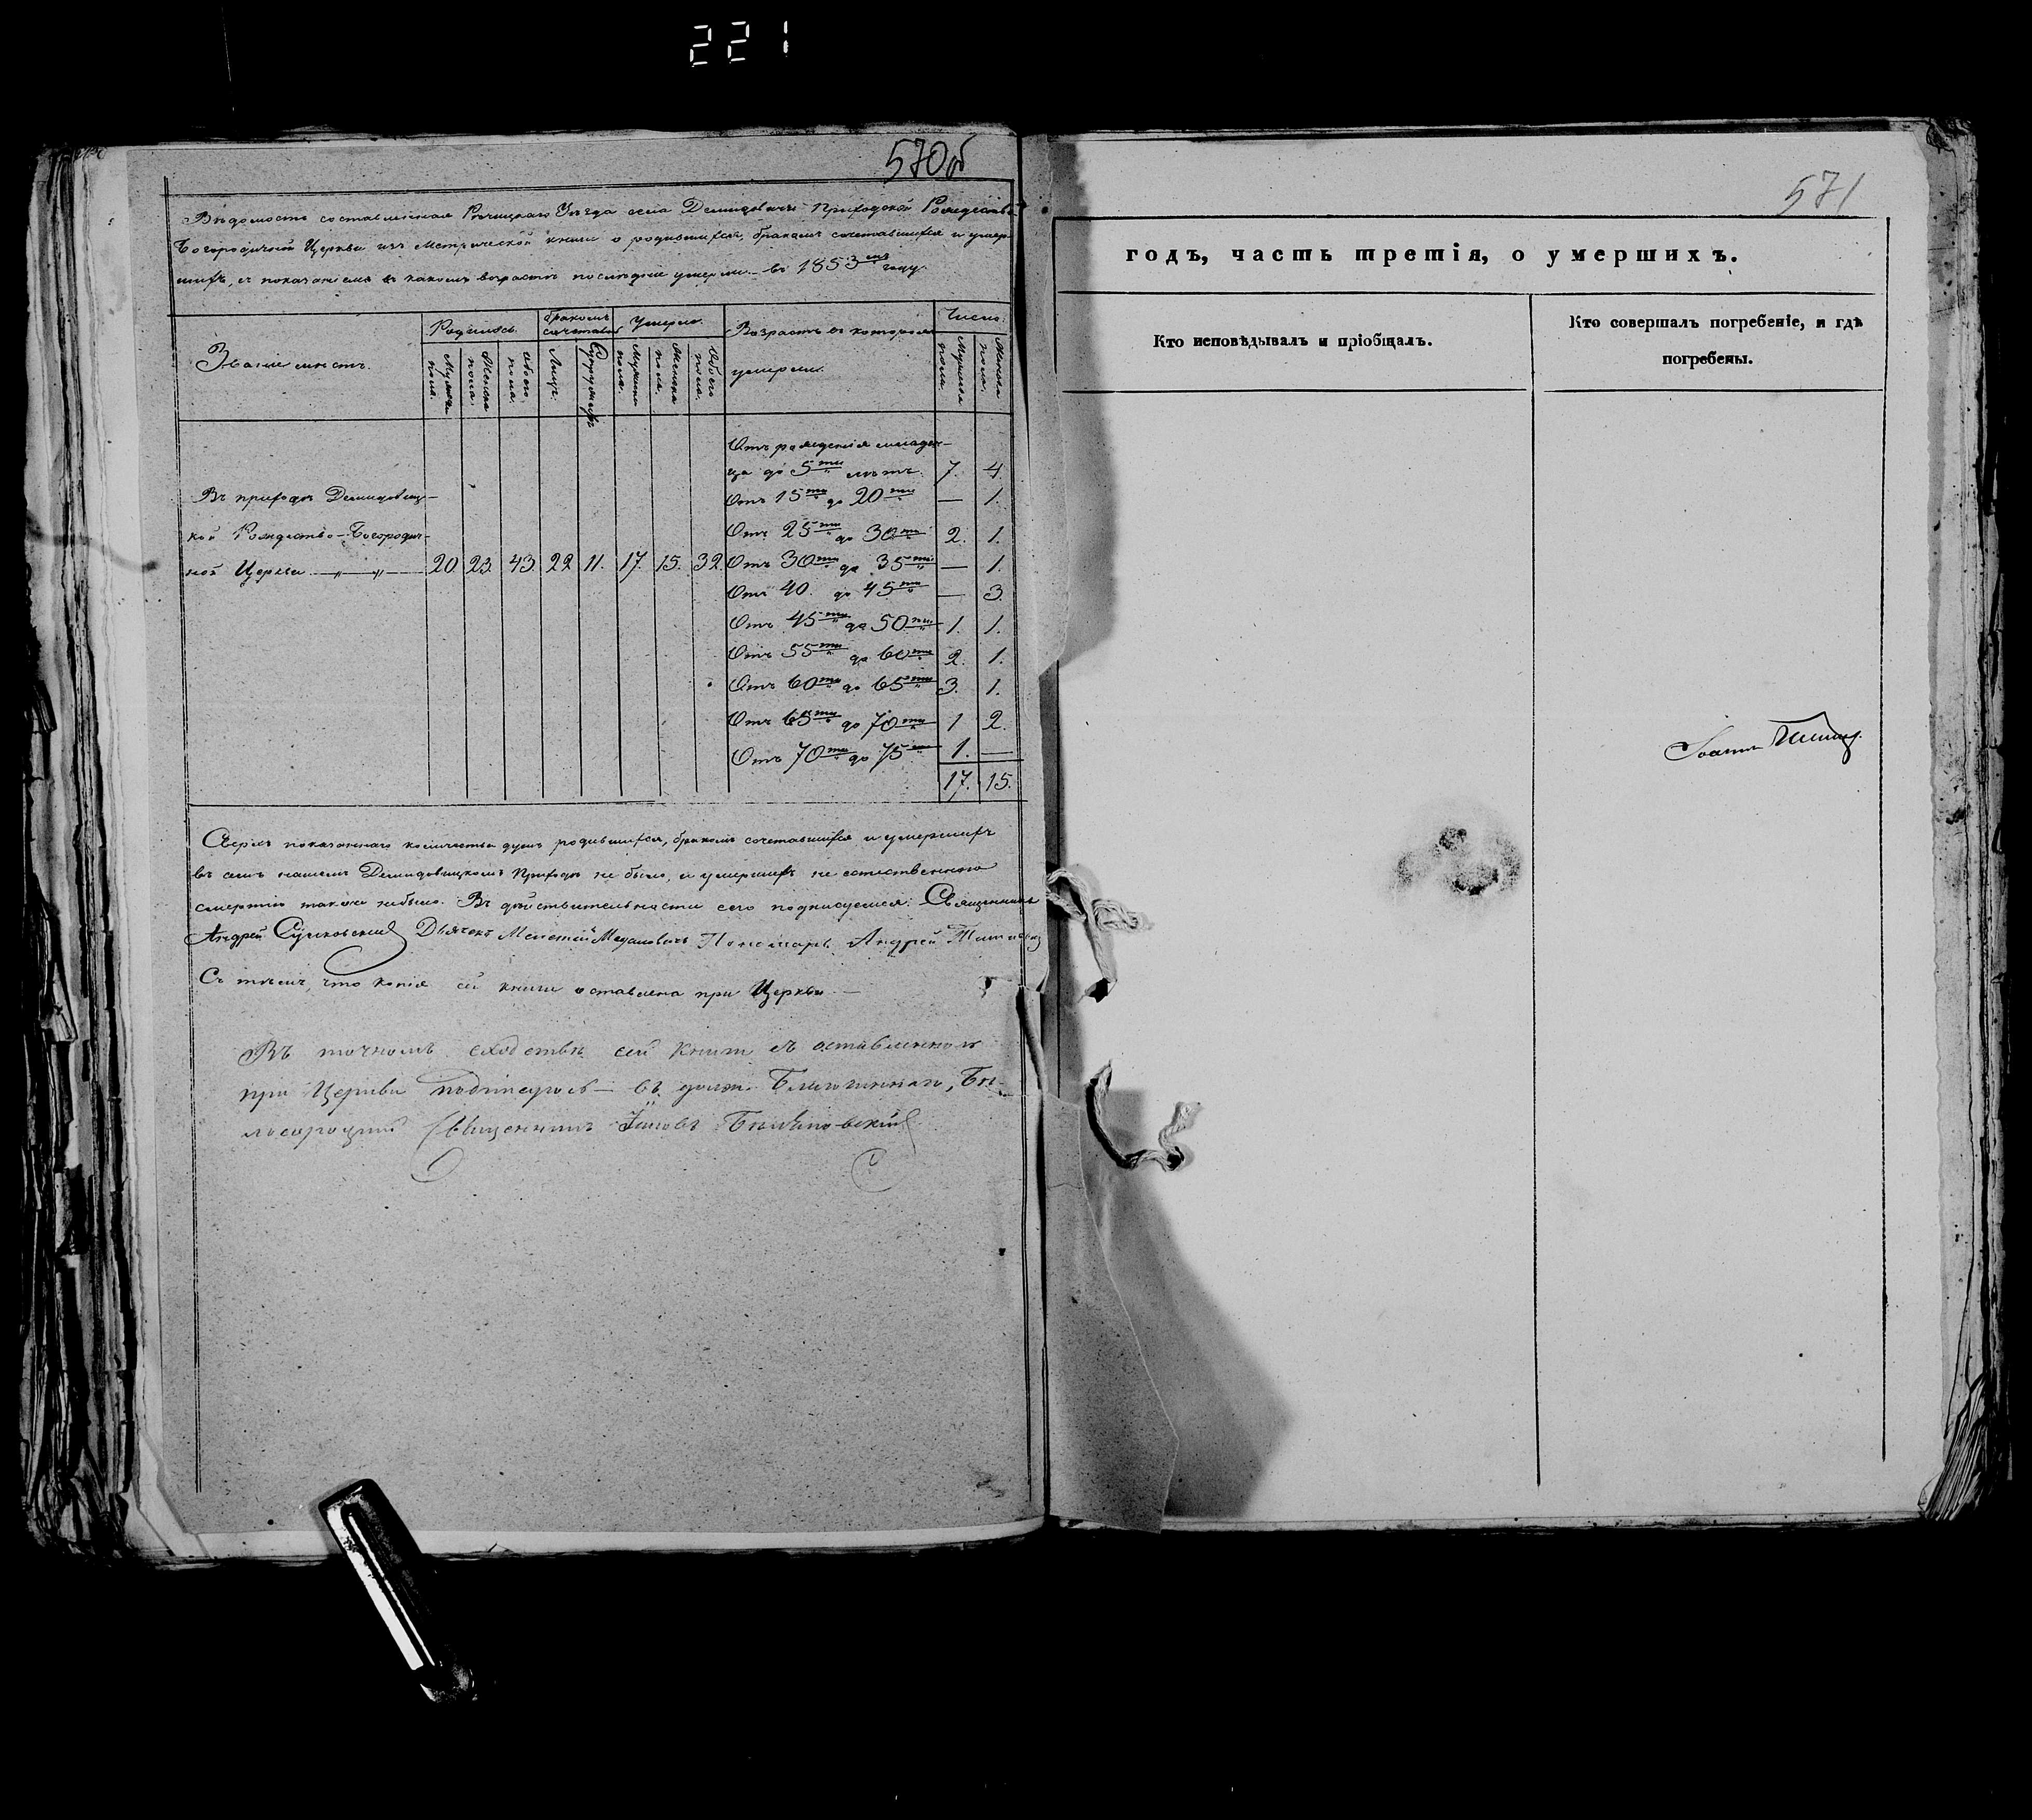 221
570об
Вѣдомость составленная Рѣчицкаго Уѣзда села Демидовичъ Приходской Рождество-
Богородичной Церкви изъ метрической книги о родившихся, бракомъ сочетавшихся и умер-
шихъ, съ показаніемъ въ какомъ возрастѣ послѣдніе умерли въ 1853мъ году.
Званіе мѣстъ.
Родилось.
Бракомъ сочеталось
Умерло.
Возрастъ въ которомъ
умерли.
Число:
Мужеска пола.
Женска пола.
Обоего пола.
Лицъ.
Супружествъ
Мужеска пола.
Женска пола.
Обоего пола.
Мужеска пола.
Женска пола.
Отъ рожденія младен-
ца до 5ти лѣтъ. 7. 4.
Въ приходѣ Демидовиц-
Отъ 15ти до 20ти — 1.
кой Рождество-Богородич-
Отъ 25ти до 30ти 2. 1.
ной Церкви 20. 23. 43. 22. 11. 17. 15. 32. Отъ 30ти до 35ти — 1.
Отъ 40. до 45ти — 3.
Отъ 45ти до 50ти 1. 1.
Отъ 55ти до 60ти 2. 1.
Отъ 60ти до 65ти 3. 1.
Отъ 65ти до 70ти 1 2.
Отъ 70ти до 75ти 1. —
17. 15.
Сверхъ показаннаго количества душъ родившихся, бракомъ сочетавшихся и умершихъ
въ семъ нашемъ Демидовицкомъ Приходѣ не было, и умершихъ не естественною
смертію также небыло. Въ дѣйствительности сего подписуемся: Священникъ
Андрей Сулковский Дьячекъ Пономарь Андрей
Съ тѣмъ, что копія сей книги оставлена при Церкви.
Въ точномъ сходствѣ сей книги съ оставленною
при Церкви подписуюсь — въ долж. Благочиннаго, Бѣ-
Священникъ
571
годъ, часть третія, о умершихъ.
Кто исповѣдывалъ и пріобщалъ.
Кто совершалъ погребеніе, и гдѣ
погребены.
Іоаннъ